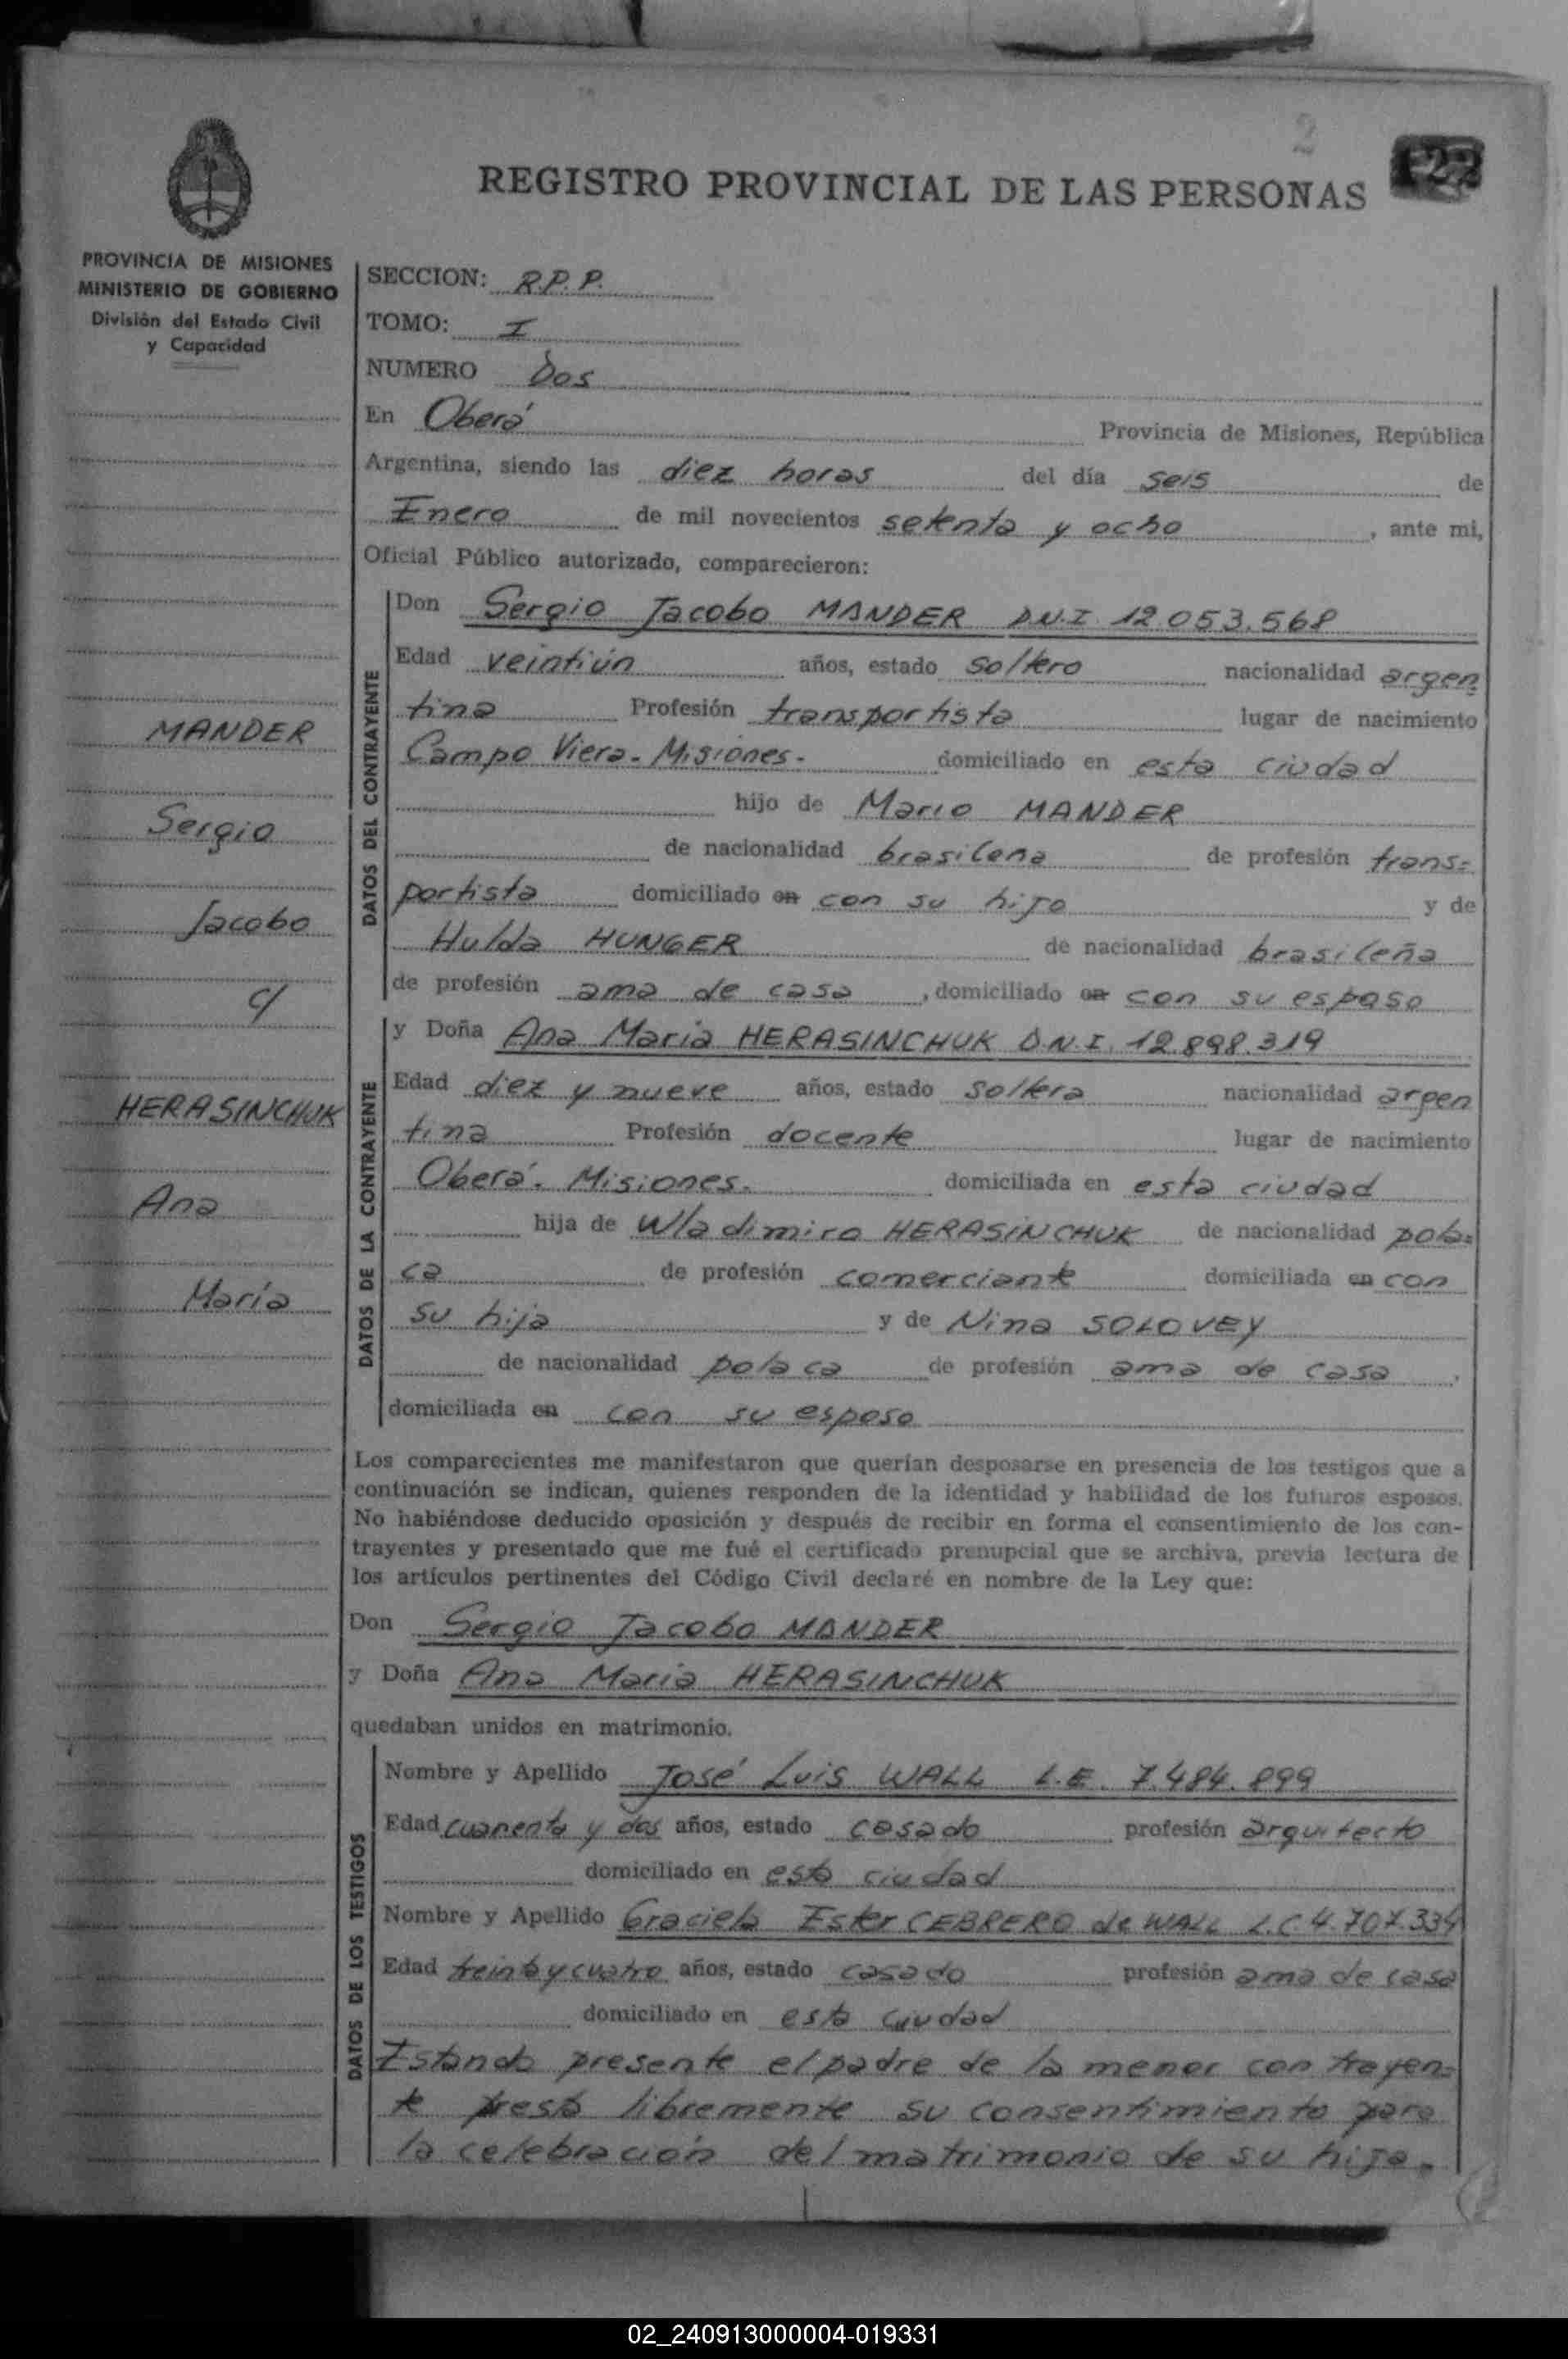 2
122
REGISTRO PROVINCIAL DE LAS PERSONAS
PROVINCIA DE MISIONES
MINISTERIO DE GOBIERNO
División del Estado Civil
y Capacidad
SECCION: R.P.P.
TOMO: I
NUMERO Dos
En Oberá Provincia de Misiones, República
Argentina, siendo las diez horas del día seis de
Enero de mil novecientos setenta y ocho, ante mi,
Oficial Público autorizado, comparecieron:
MANDER
Sergio
Jacobo
c/
HERASINCHUK
Ana
María
DATOS DEL CONTRAYENTE
Don Sergio Jacobo MANDER D.N.I. 12.053.568
Edad veintiún años, estado soltero nacionalidad argen
tina Profesión transportista lugar de nacimiento
Campo Viera - Misiones. domiciliado en esta ciudad
hijo de Mario MANDER
de nacionalidad brasilena de profesión trans=
portista domiciliado en con su hijo y de
Hulda HUNGER de nacionalidad brasileña
de profesión ama de casa, domiciliado en con su esposo
DATOS DE LA CONTRAYENTE
y Doña Ana Maria HERASINCHUK D.N.I. 12.898.319
Edad diez y nueve años, estado soltera nacionalidad argen
tina Profesión docente lugar de nacimiento
Oberá. Misiones. domiciliada en esta ciudad
hija de Wladimiro HERASINCHUK de nacionalidad pola=
ca de profesión comerciante domiciliada en con
su hija y de Nina SOLOVEY
de nacionalidad polaca de profesión ama de casa,
domiciliada en con su esposo
Los comparecientes me manifestaron que querían desposarse en presencia de los testigos que a
continuación se indican, quienes responden de la identidad y habilidad de los futuros esposos.
No habiéndose deducido oposición y después de recibir en forma el consentimiento de los con-
trayentes y presentado que me fué el certificado prenupcial que se archiva, previa lectura de
los artículos pertinentes del Código Civil declaré en nombre de la Ley que:
Don Sergio Jacobo MANDER
y Doña Ana Maria HERASINCHUK
quedaban unidos en matrimonio.
DATOS DE LOS TESTIGOS
Nombre y Apellido José Luis WALL L.E. 7.484.899
Edad cuarenta y dos años, estado casado profesión arquitecto
domiciliado en esta ciudad
Nombre y Apellido Graciela Ester CEBRERO de WALL L.C. 4.707.334
Edad treinta y cuatro años, estado casado profesión ama de casa
domiciliado en esta ciudad
Estando presente el padre de la menor contrayen=
te presta libremente su consentimiento para
la celebración del matrimonio de su hija.
02_240913000004-019331